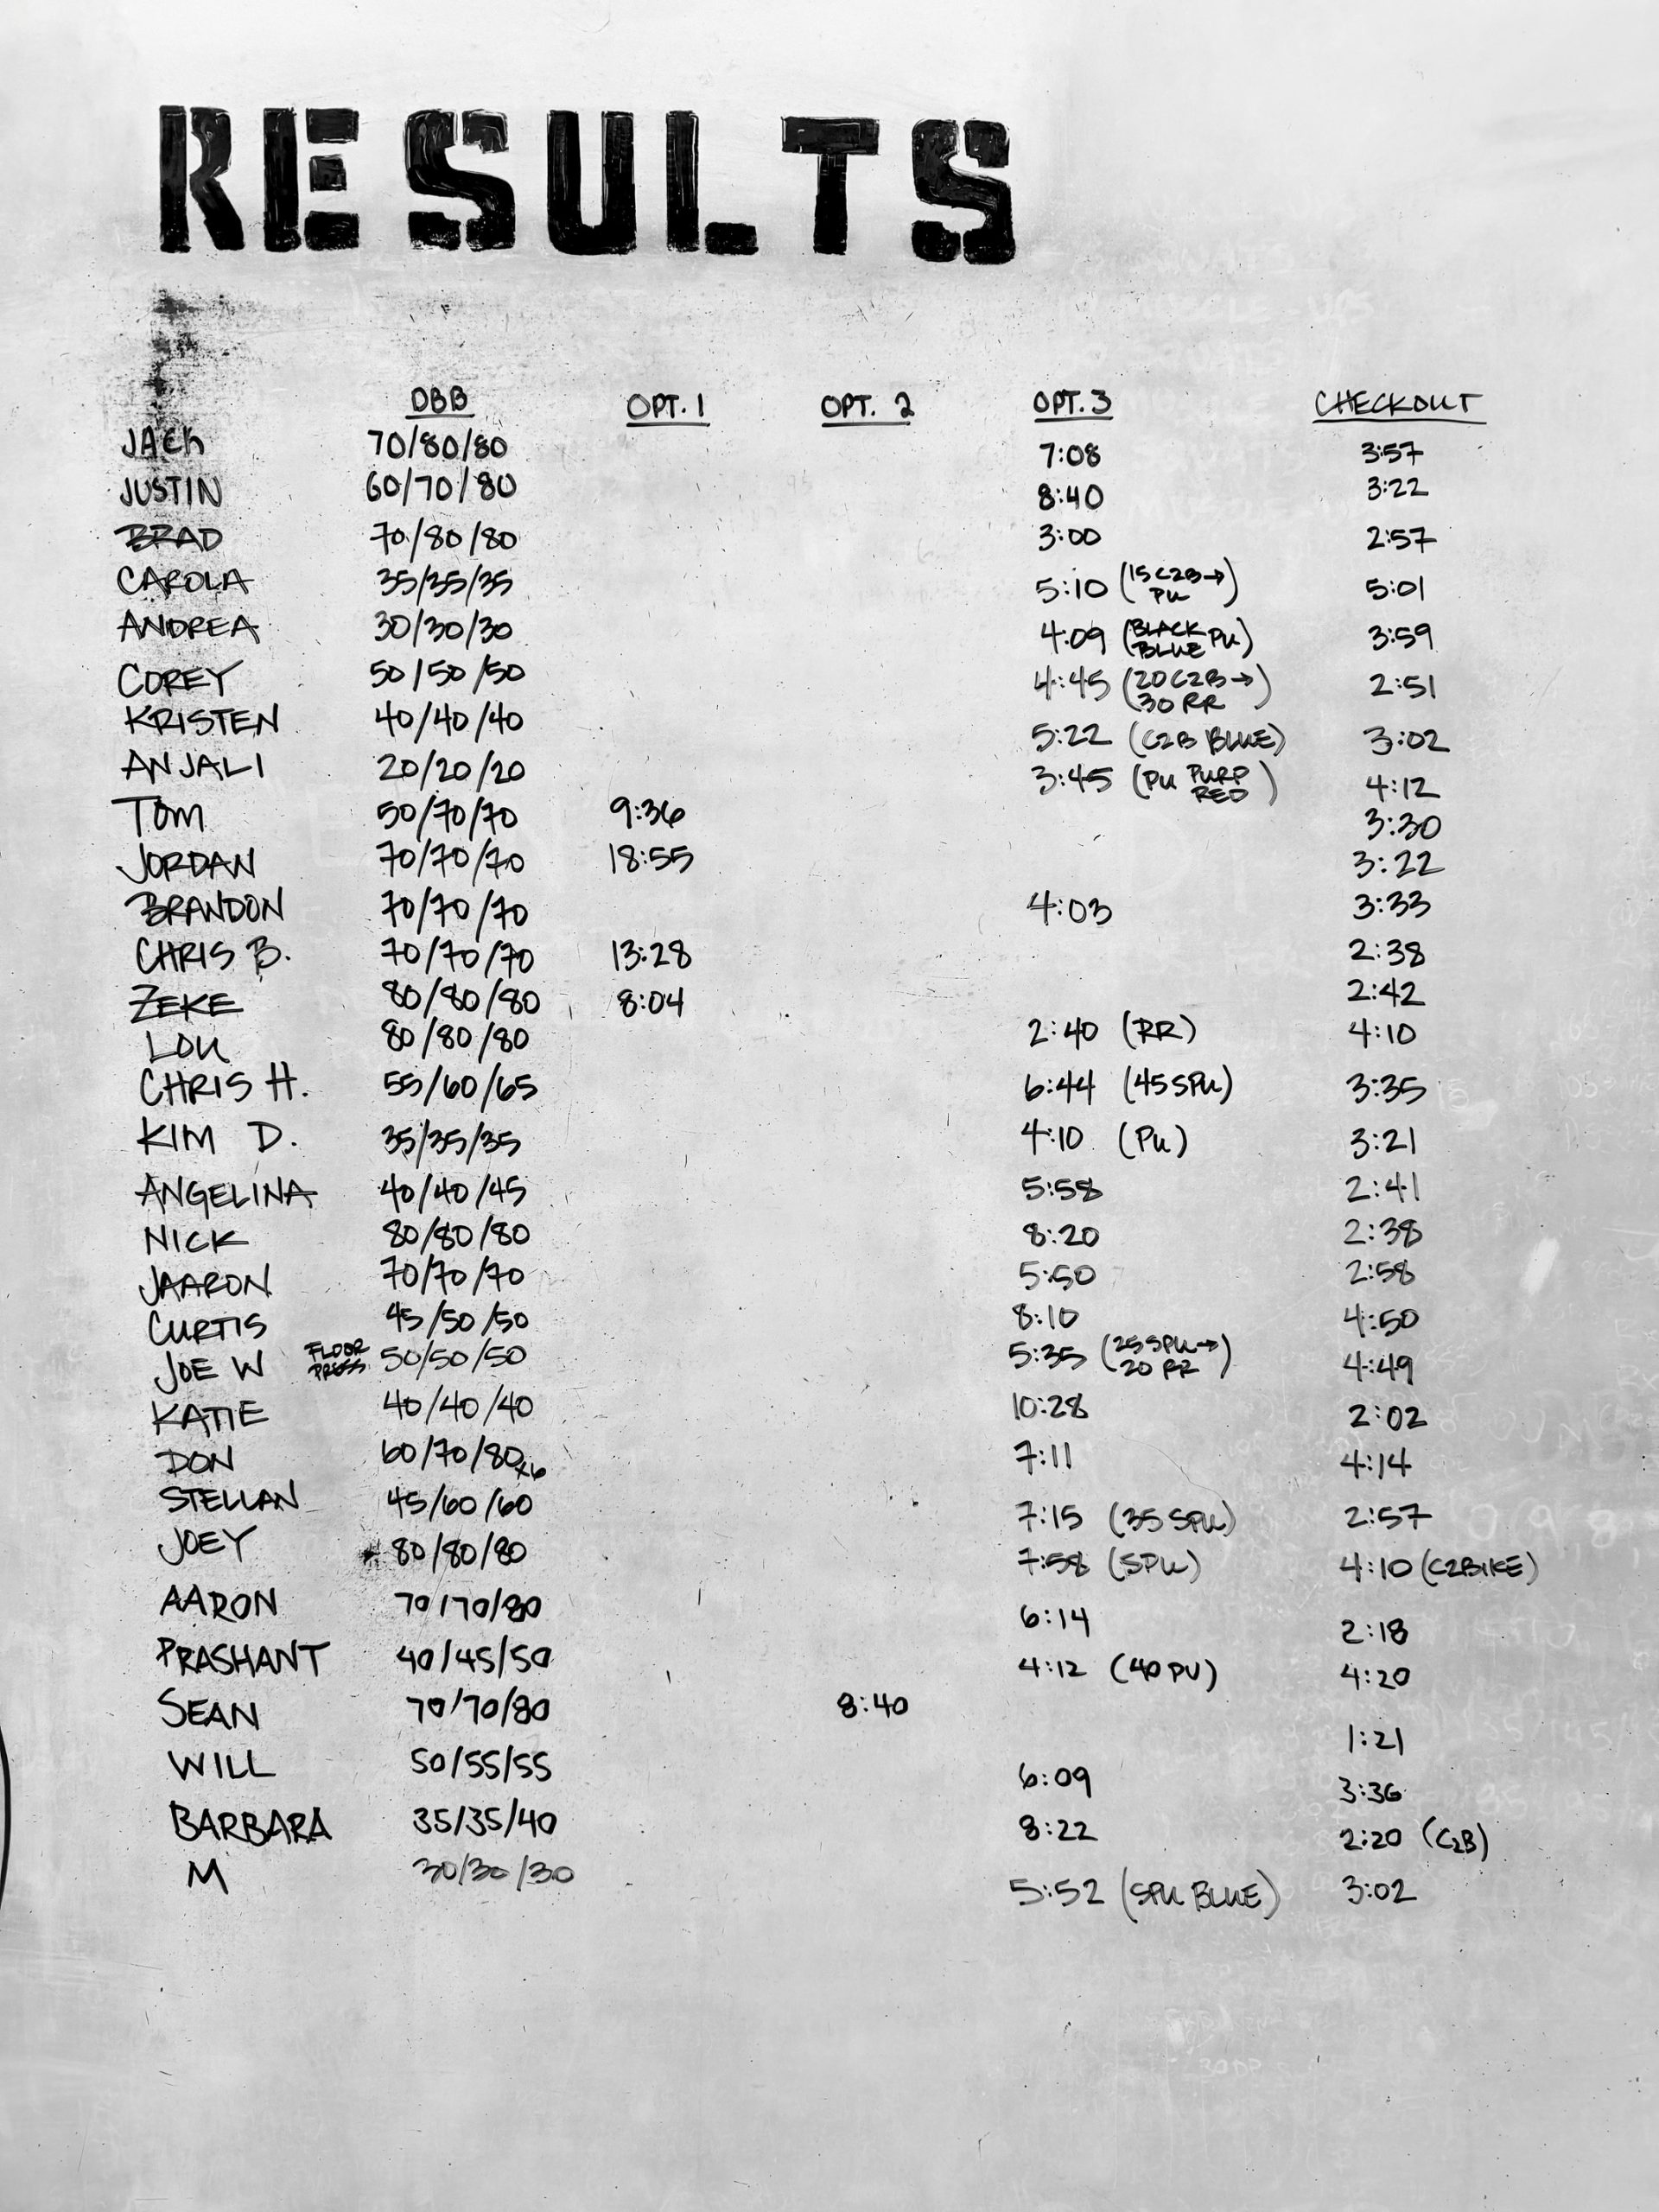 RESULTS
DBB OPT. 1 OPT. 2 OPT. 3 CHECKOUT
JACK 70/80/80 7:08 3:57
JUSTIN 60/70/80 8:40 3:22
BRAD 70/80/80 3:00 2:57
CAROLA 35/35/35 5:10 (15 C2B→ PU) 5:01
ANDREA 30/30/30 4:09 (BLACK BLUE PU) 3:59
COREY 50/50/50 4:45 (20 C2B→ 30 RR) 2:51
KRISTEN 40/40/40 5:22 (C2B BLUE) 3:02
ANJALI 20/20/20 3:45 (PU PURP RED) 4:12
TOM 50/70/70 9:36 3:30
JORDAN 70/70/70 18:55 3:22
BRANDON 70/70/70 4:03 3:33
CHRIS B. 70/70/70 13:28 2:38
ZEKE 80/80/80 8:04 2:42
LOU 80/80/80 2:40 (RR) 4:10
CHRIS H. 55/60/65 6:44 (45 SPU) 3:35
KIM D. 35/35/35 4:10 (PU) 3:21
ANGELINA 40/40/45 5:58 2:41
NICK 80/80/80 8:20 2:38
JAARON 70/70/70 5:50 2:58
CURTIS 45/50/50 8:10 4:50
JOE W FLOOR PRESS 50/50/50 5:35 (25 SPU→ 20 RR) 4:49
KATIE 40/40/40 10:28 2:02
DON 60/70/80x6 7:11 4:14
STELLAN 45/60/60 7:15 (35 SPU) 2:57
JOEY 80/80/80 7:58 (SPU) 4:10 (C2BIKE)
AARON 70/70/80 6:14 2:18
PRASHANT 40/45/50 4:12 (40 PU) 4:20
SEAN 70/70/80 8:40 1:21
WILL 50/55/55 6:09 3:36
BARBARA 35/35/40 8:22 2:20 (C2B)
M 30/30/30 5:52 (SPU BLUE) 3:02